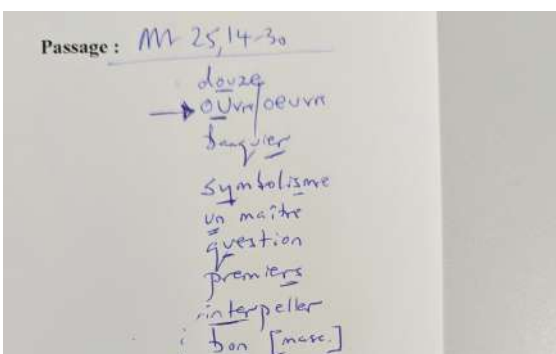 Passage : Mt 25,14-30
douze
→ OUvre/oeuvre
banquier
symbolisme
un maître
question
premiers
interpeller
bon [masc.]